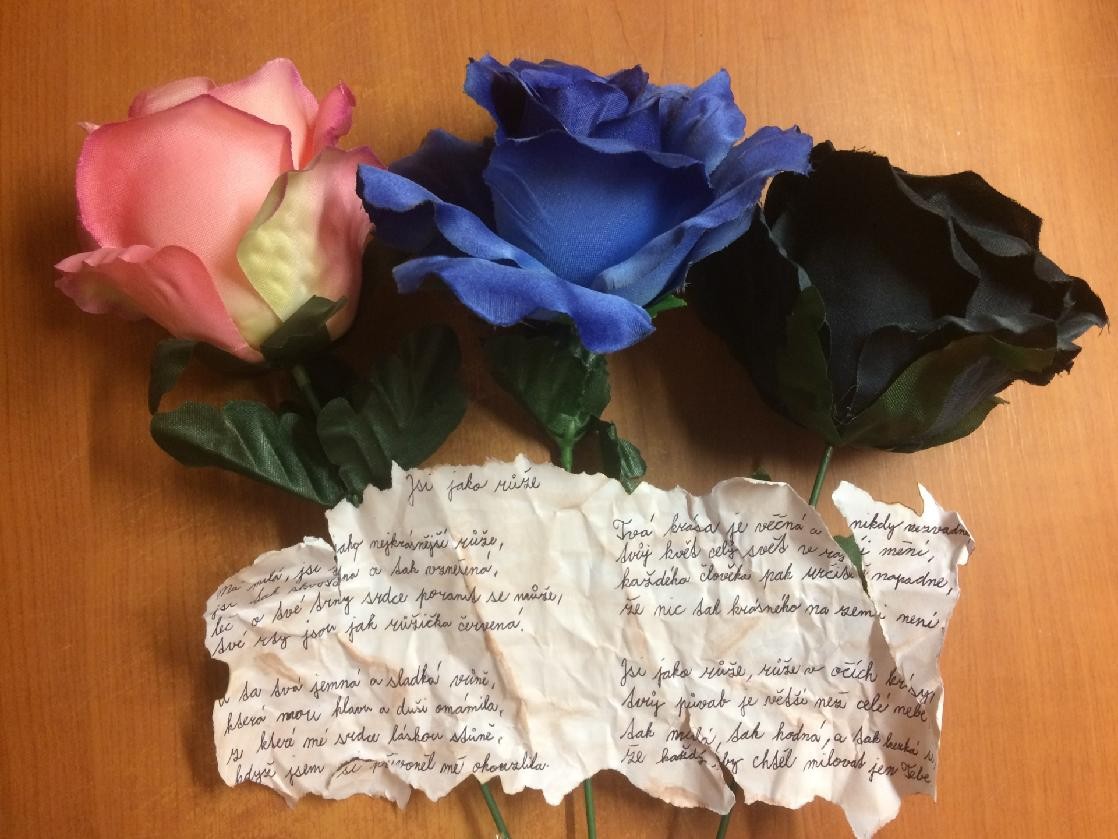 Jsi jako růže
má milá, jsi jako nejkrásnější růže,
jsi tak skvostná a tak vznešená,
leč o své trny srdce poranit se může,
tvé rty jsou jak růžička červená!
a ta tvá jemná a sladká vůně,
která mou hlavu a duši omámila,
ze které mé srdce láskou stůně,
když jsem si přivoněl mě okouzlila.
Tvá krása je věčná a nikdy nezvadne,
tvůj květ celý svět v ráj mění,
každého člověka pak určitě napadne,
že nic tak krásného na zemi není,
Jsi jako růže, růže v očích krásy,
tvůj půvab je větší než celé nebe
tak milá, tak hodná, a tak hezká
že každý by chtěl milovat jen Tebe